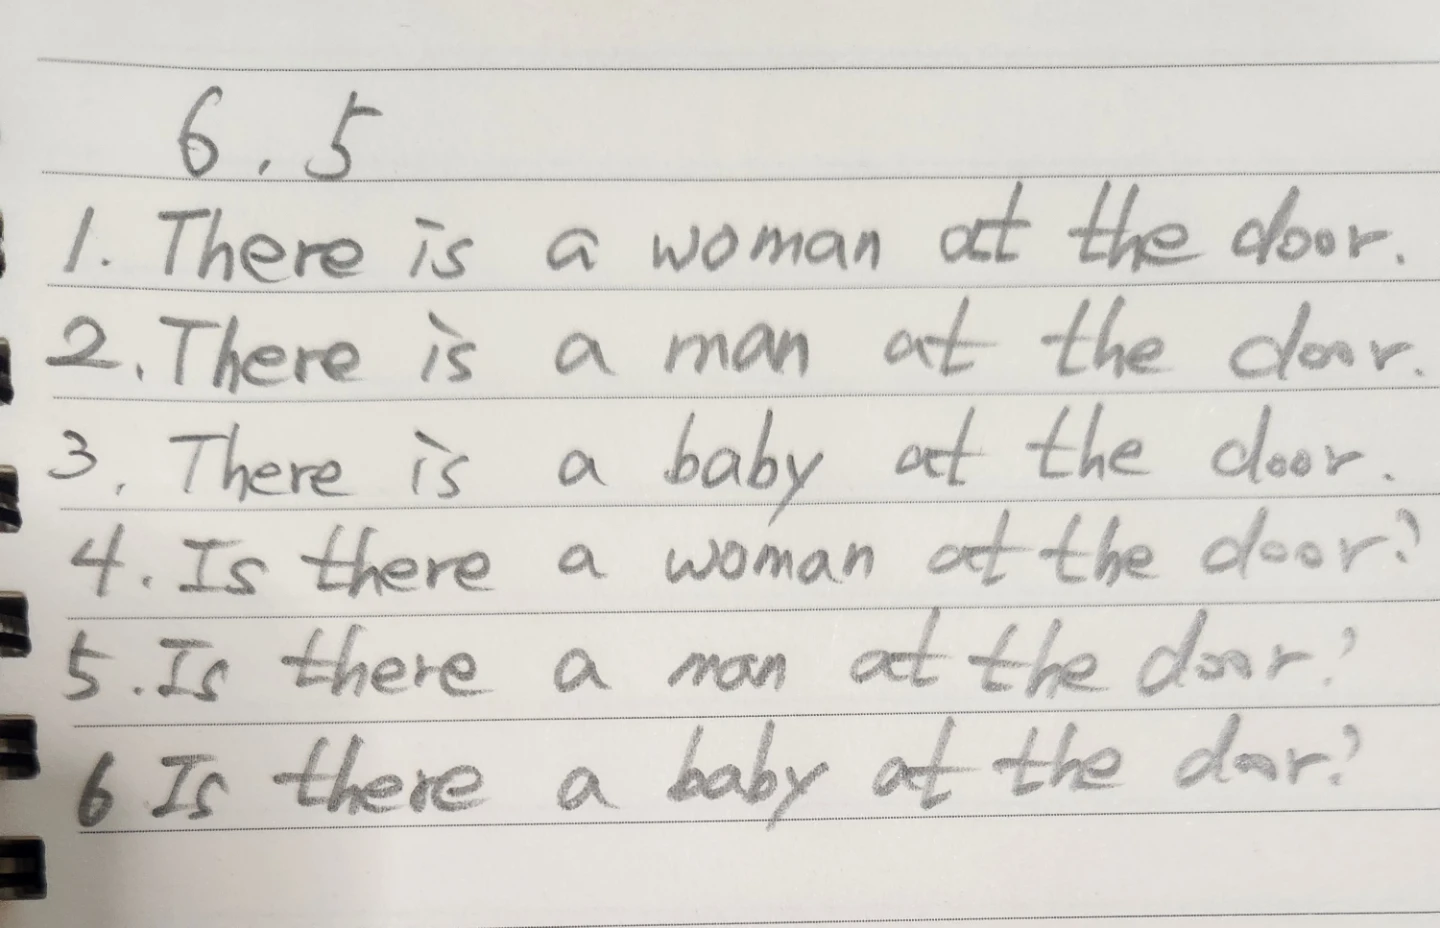 6.5
1. There is a woman at the door.
2. There is a man at the door.
3. There is a baby at the door.
4. Is there a woman at the door?
5. Is there a man at the door?
6 Is there a baby at the door?